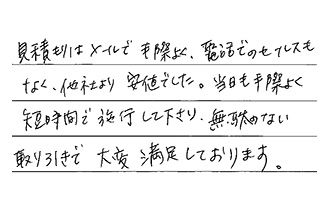 見積もりはメールで手際よく、電話でのセールスも
なく、他社より安値でした。当日も手際よく
短時間で施行して下さり、無駄のない
取り引きで大変満足しております。